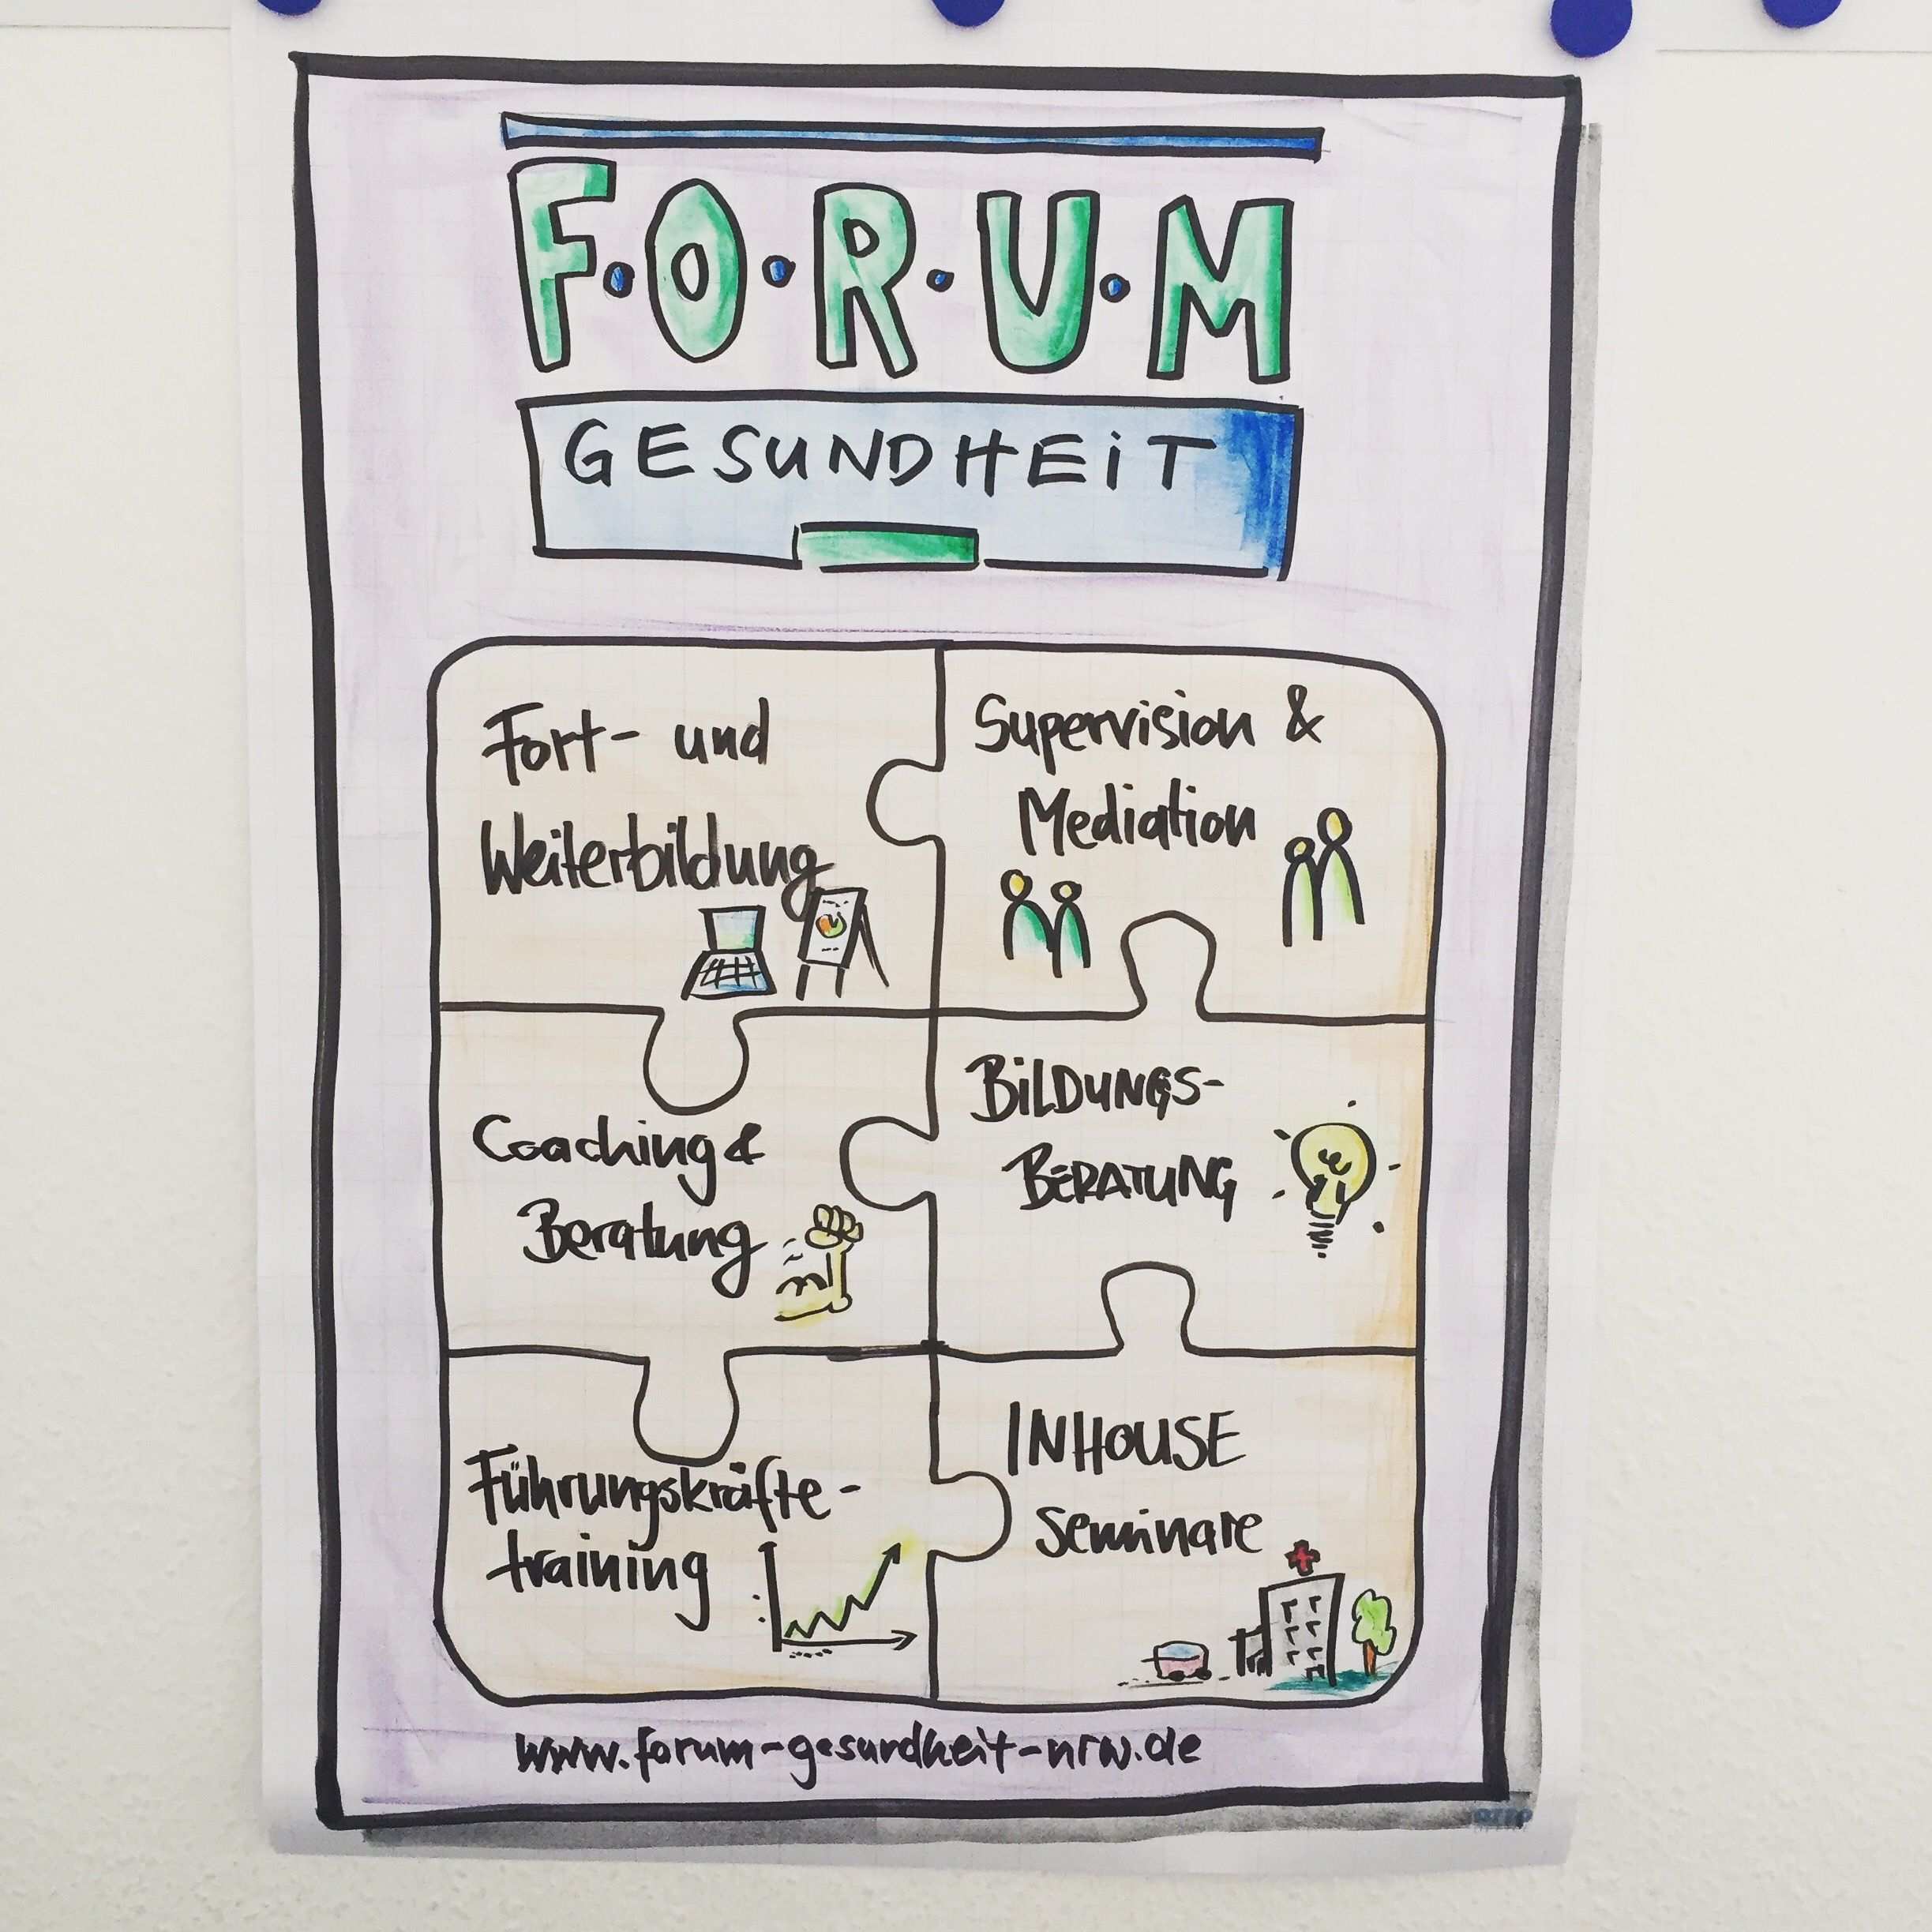 F.O.R.U.M
GESUNDHEiT
Fort- und
Weiterbildung
Supervision &
Mediation
Coaching &
Beratung
BiLDUNGS-
BERATUNG
Führungskräfte-
training
INHOUSE
Seminare
www.forum-gesundheit-nrw.de